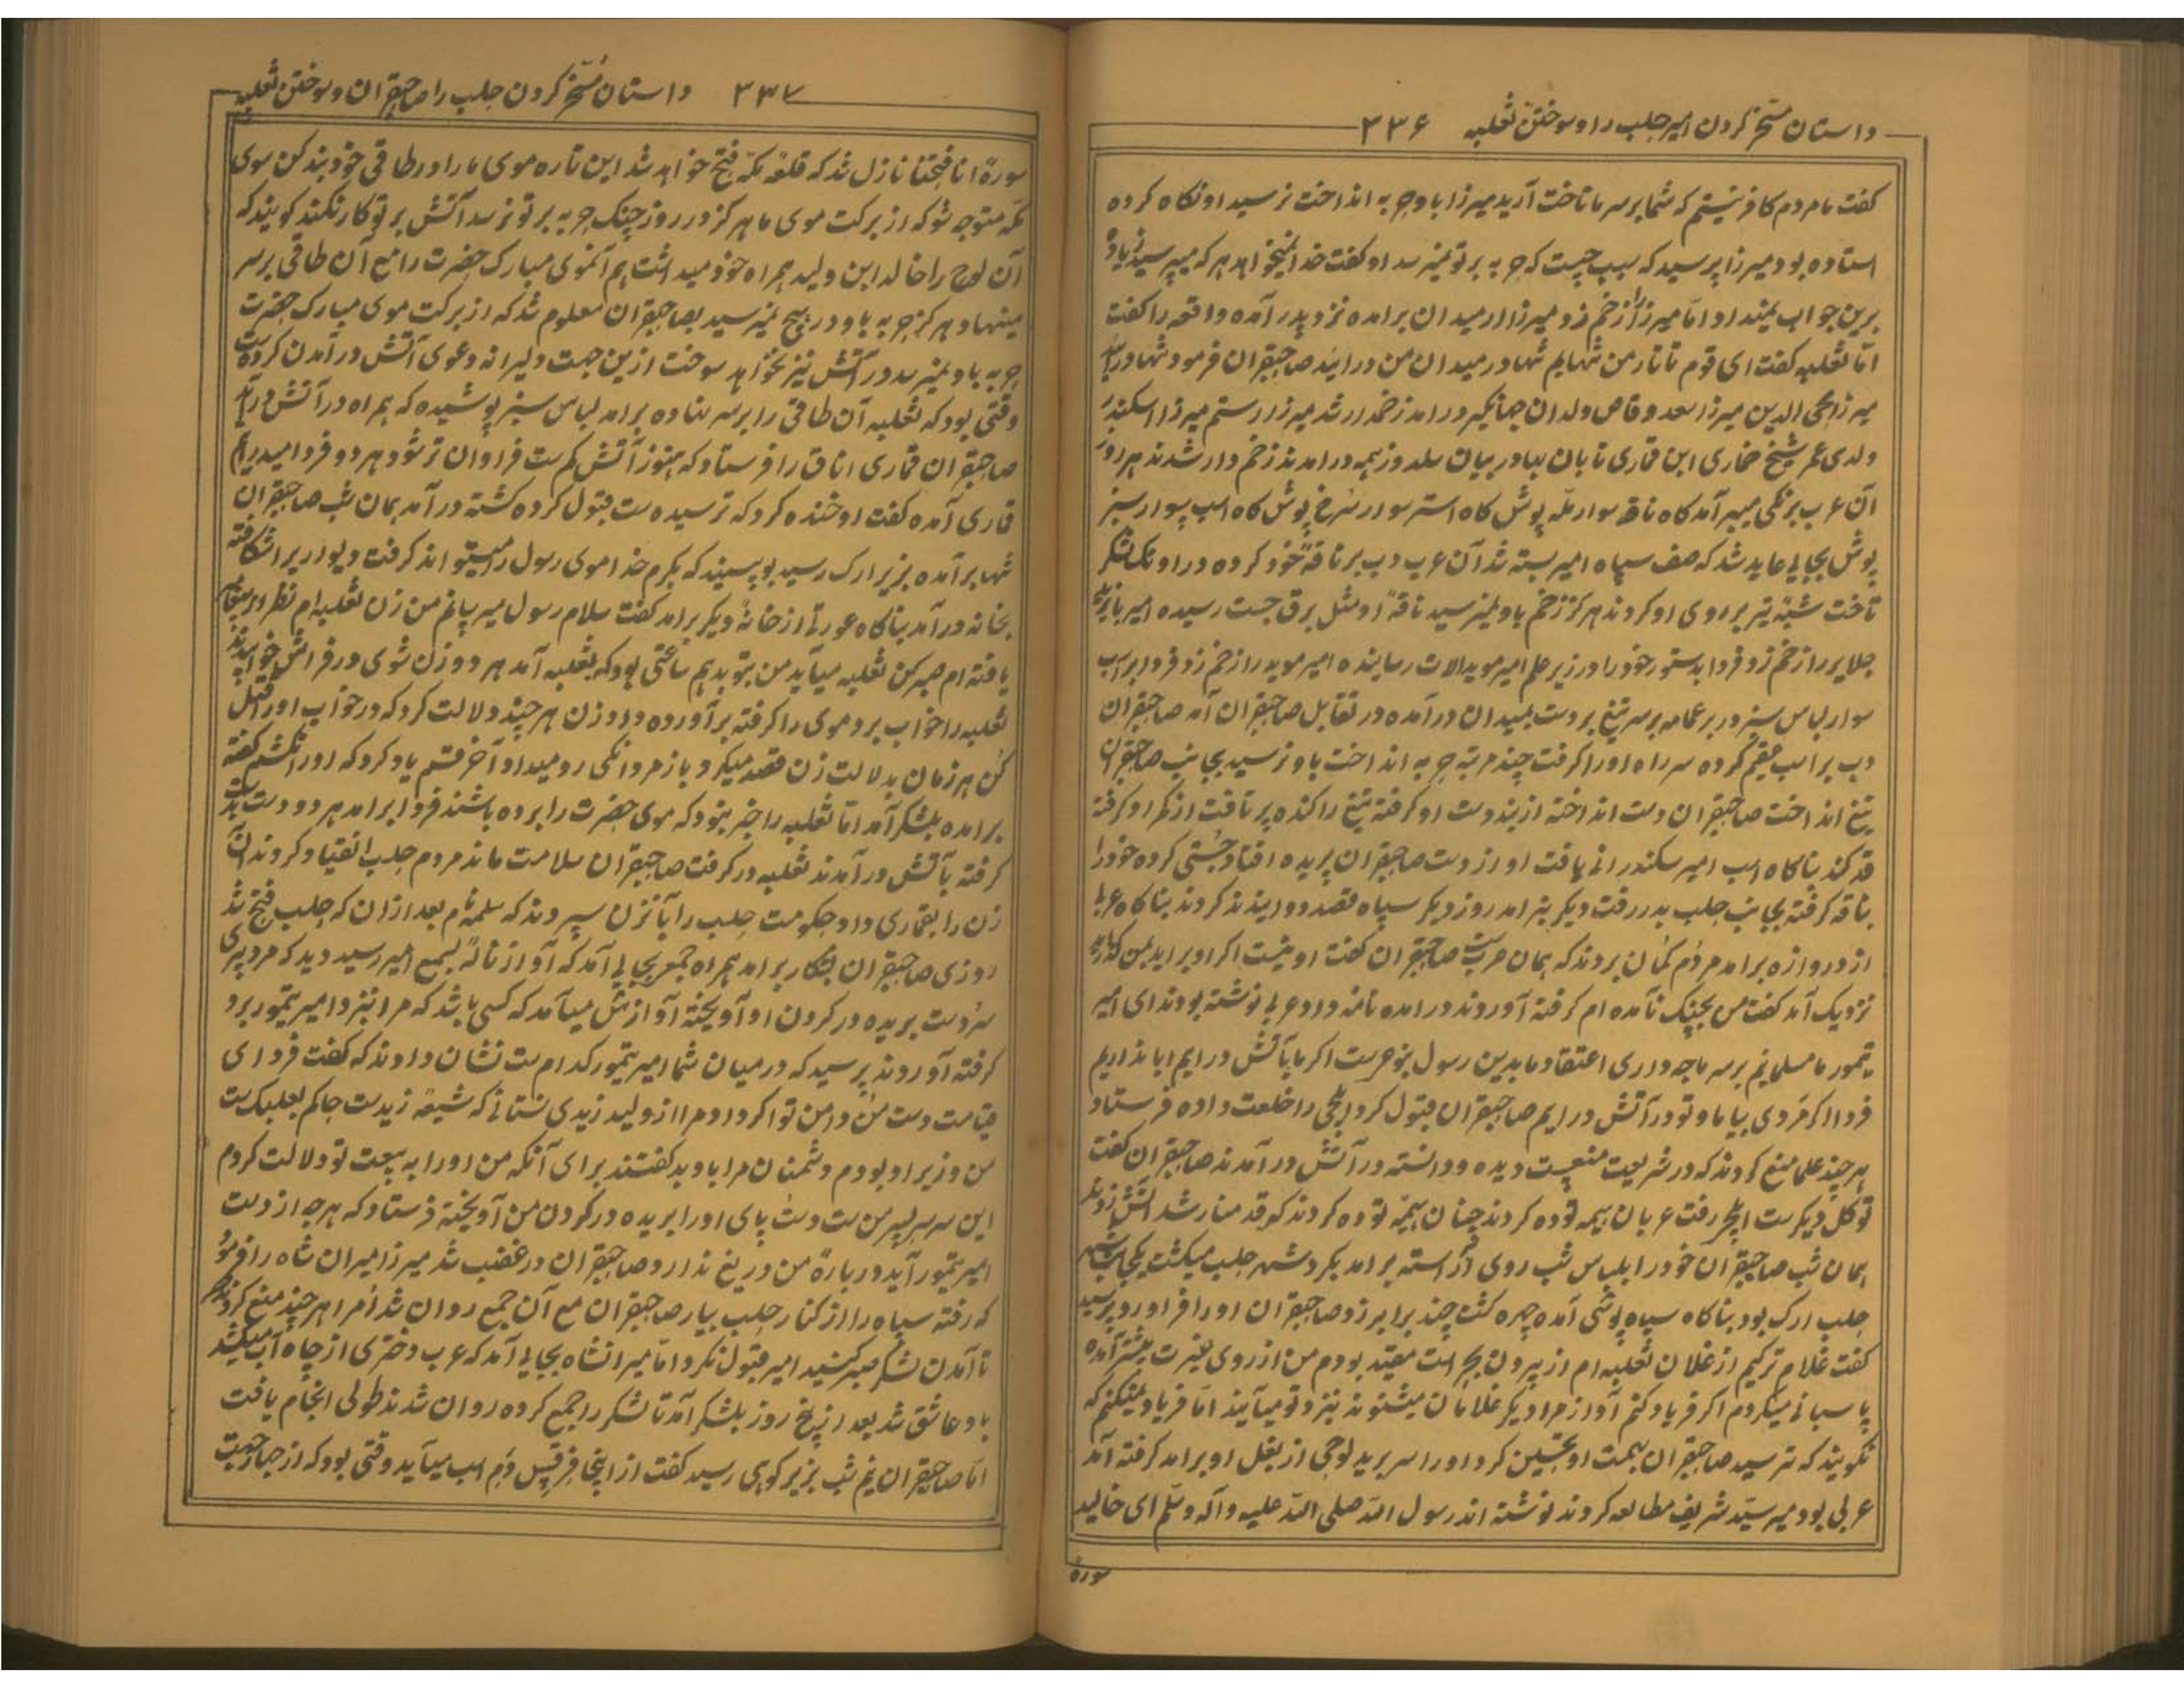 داستان مسخر کردن امیر حلب را و سوختن ثعلبه ۳۳۶
کفت ما مردم کافر نیستیم که شما بر سر ما تاخت آرید میرزا باو حربه انداخت نرسید او نکاه کرده
استاده بود میرزا پرسید که سبب چیست که حربه بر تو نمیرسد او کفت خدا نمیخواهد هر که میپرسید
برین جواب میداد اما میرزا را زخم زد میرزا از میدان برامده نزد پدر آمده واقعه را کفت
اما ثعلبه کفت ای قوم تاتار من تنهایم تنها در میدان من درایند صاحبقران فرمود تنها
میرزا محی الدین میرزا سعد وقاص ولدان جهانکیر درامد زخمدار شد میرزا رستم میرزا اسکندر
ولدی عمر شیخ خماری ابن قماری تابان بهادر بیان سلدوز همه درامدند زخم دار شدند هر روز
آن عرب برنکی میبر آمد کاه ناقه سوار پوش کاه استر سوار سرخ پوش کاه اسب سوار سبز
پوش بجایی عاید شد که صف سپاه امیر بسته شد آن عرب دپ بر ناقهٔ خود کرده
تاخت تیر بر روی او کردند هرکز زخم باو نمیرسید ناقهٔ او مثل برق جست رسیده امیر
جلایر را زخم زد فردا بدستور خود را در زیر علم امیر موید ارلات رسانیده امیر موید را زخم زد فردا بر اسب
سوار لباس سبز در بر عمامه بر سر تیغ بر دست بمیدان درآمده در تقابل صاحبقران آمد صاحبقران
دپ بر اسب کرده سر راه او را کرفت چند مرتبه حربه انداخت باو نرسید بجانب صاحبقران
تیغ انداخت صاحبقران دست انداخته از بند دست او کرفته تیغ را کنده پرتافت از کمر او کرفته
قد کند بناکاه اسب امیر سکندر رانی یافت او از دست صاحبقران پریده افتاد جستی کرده خود را
بناقه کرفته بجانب حلب بدر رفت دیکر نبرامد روز دیکر سپاه قصد دوانیدند کردند بناکاه
از دروازه برامد مردم کمان بردند که همان صاحبقران کفت او نیست اکر او براید بمن
نزدیک آمد کفت من بجنک نآمده ام کرفته آوردند درامده نامه داد عربی نوشته بودند ای امیر
تیمور ما مسلمانیم بر سر ما چه داری اعتقاد ما بدین رسول اکر ما بآتش درایم ابا نداریم
فردا اکر مردی بیا ما و تو در آتش درایم صاحبقران قبول کرد ایلچی را خلعت داده فرستاد
هر چند علما منع کردند که در شریعت دیده و دانسته در آتش درآمدند صاحبقران کفت
توکل دیکرست ایلچی رفت عربان هیمه توده کردند چنان هیمه توده کردند که قد منار شد آتش زدند
همان شب صاحبقران خود را بلباس شب روی آراسته برامد بکرد شهر حلب میکشت
حلب ارک بود بناکاه سیاه پوشی آمده چهره کشت چند برابر زد صاحبقران او را فرا اورد پرسید
کفت غلام ترکیم از غلامان ثعلبه ام از بیرون مقید بودم من از روی غیرت
پاسبانی میکردم اکر فریاد کنم آواز مرا دیکر غلامان میشنوند نزد تو میآیند اما فریاد نمیکنم که
نکویند که ترسید صاحبقران بهمت او تحسین کرد او را سر برید لوحی از بغل او برامد کرفته آمد
عربی بود میر سید شریف مطالعه کردند نوشته اند رسول الله صلی الله علیه و آله وسلم ای خالید
سورة
داستان مسخر کردن حلب را صاحبقران و سوختن ثعلبه ۳۳۷
سورة انا فتحنا نازل شد که قلعه مکه فتح خواهد شد این تاره موی ما را در طاقی خود بند کن سوی
مکه متوجه شو که از برکت موی ما هرکز در روز جنک حربه بر تو نرسد آتش بر تو کار نکند کویند که
آن لوح را خالد ابن ولید همراه خود میداشت هم آنموی مبارک حضرت را مع آن طاقی بر سر
مینهاد هرکز حربه باو در هیچ نمیرسید بصاحبقران معلوم شد که از برکت موی مبارک حضرت
حربه باو نمیرسد در آتش نیز نخواهد سوخت ازین جهت دلیرانه دعوی آتش درآمدن کرده
وقتی بود که ثعلبه آن طاقی را بر سر نهاده برامد لباس سبز پوشیده که همراه در آتش درآید
صاحبقران قماری اناق را فرستاد که هنوز آتش کم ست فراوان تر شود هر دو فردا میدرایم
قماری آمده کفت او خنده کرد که ترسیده ست قبول کرده کشته درآمد همان شب صاحبقران
تنها برآمده بزیر ارک رسید بوسیند که بکرم خدا موی رسول را میتواند کرفت دیوار شکافته
بخانه درآمد بناکاه عورتی از خانهٔ دیکر برامد کفت سلام رسول میرسانم من زن ثعلبه ام نظر
یافته ام صبر کن ثعلبه میآید من بتو بدهم ساعتی بود که ثعلبه آمد هر دو زن شوی در فراش خوابیدند
ثعلبه را خواب برد موی را کرفته برآورده داد زن هر چند دلالت کرد که در خواب او را قتل
کن هر زمان بدلالت زن قصد میکرد باز مردانکی رو میداد آخر قسم یاد کرد که او را نکشم کفته
برامده بلشکر آمد اما ثعلبه را خبر نبود که موی حضرت را برده باشند فردا برامد هر دو دست
کرفته بآتش درآمدند ثعلبه در کرفت صاحبقران سلامت ماند مردم حلب انقیاد کردند آن
زن را بقماری داد حکومت حلب را بآنزن سپردند که سلمه نام بعد ازان که حلب فتح شد
روزی صاحبقران بشکار برامد همراه جمع بجایی آمد که آواز نالهٔ بسمع امیر رسید دید که مرد پیری
سر و دست بریده در کردن او آویخته آواز میآمد که کسی باشد که مرا نزد امیر تیمور برد
کرفته آوردند پرسید که در میان شما امیر تیمور کدام ست نشان دادند که کفت فردای
قیامت دست من و دامن تو اکر داد مرا از ولید زیدی نستانی که شیعهٔ زیدست حاکم بعلبک ست
من وزیر او بودم دشمنان مرا باو بد کفتند برای آنکه من او را به بیعت تو دلالت کردم
این سر پسر من ست دست پای او را بریده در کردن من آویخته فرستاد که هر چه از دست
امیر تیمور آید در بارهٔ من دریغ ندارد صاحبقران در غضب شد میرزا میران شاه را فرمود
که رفته سپاه را از کنار حلب بیار صاحبقران مع آن جمع روان شد امرا هر چند منع کردند
تا آمدن لشکر صبر کنید امیر قبول نکرد اما میرانشاه بجایی آمد که عرب دختری از چاه آب میکشد
باو عاشق شد بعد از پنج روز بلشکر آمد تا لشکر را جمع کرده روان شدند طولی انجام یافت
اما صاحبقران نیم شب بزیر کوهی رسید کفت از اینجا دم اسب میآید وقتی بود که از